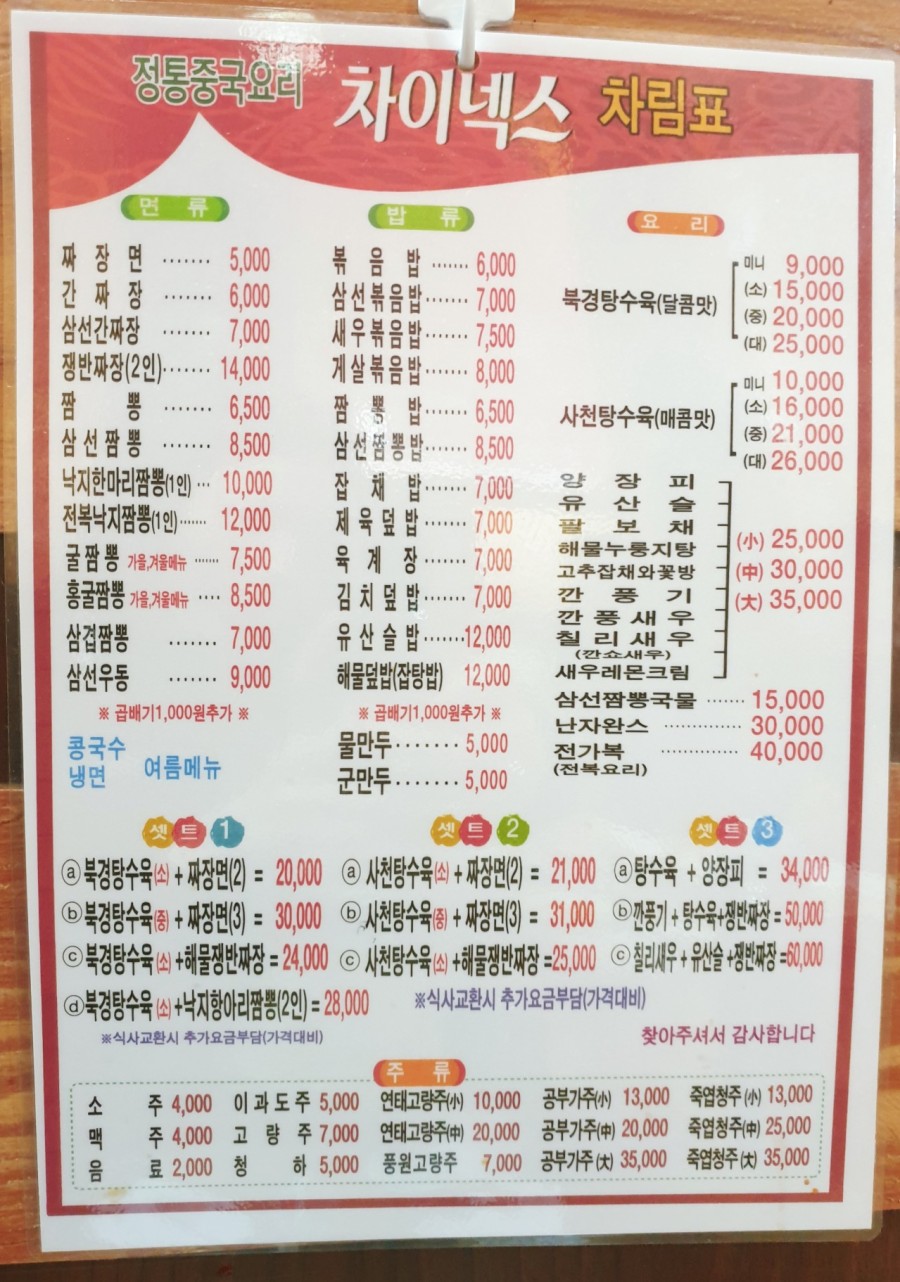 정통중국요리 차이넥스 차림표
면 류
짜 장 면 ······· 5,000
간 짜 장 ······· 6,000
삼선간짜장 ······· 7,000
쟁반짜장(2인)······· 14,000
짬 뽕 6,500
삼 선 짬 뽕 8,500
낙지한마리짬뽕(1인) ··· 10,000
전복낙지짬뽕(1인)······· 12,000
굴짬뽕 가을,겨울메뉴 ······· 7,500
홍굴짬뽕 가을,겨울메뉴 ···· 8,500
삼겹짬뽕 ······· 7,000
삼선우동 ······· 9,000
※ 곱배기1,000원추가 ※
콩국수
냉면
여름메뉴
밥 류
볶 음 밥 ······· 6,000
삼선볶음밥······· 7,000
새우볶음밥······· 7,500
게살볶음밥······· 8,000
짬 뽕 밥······· 6,500
삼선짬뽕밥······· 8,500
잡 채 밥······· 7,000
제육덮밥······· 7,000
육 계 장······· 7,000
김치덮밥······· 7,000
유산슬밥·······12,000
해물덮밥(잡탕밥) 12,000
※ 곱배기1,000원추가 ※
물만두······· 5,000
군만두······· 5,000
요 리
북경탕수육(달콤맛)
미니 9,000
(소) 15,000
(중) 20,000
(대) 25,000
사천탕수육(매콤맛)
미니 10,000
(소) 16,000
(중) 21,000
(대) 26,000
양 장 피
유 산 슬
팔 보 채
해물누룽지탕
고추잡채와꽃방
깐 풍 기
깐 풍 새 우
칠 리 새 우
(깐쇼새우)
새우레몬크림
(小) 25,000
(中) 30,000
(大) 35,000
삼선짬뽕국물 ······· 15,000
난자완스 30,000
전가복 ·············· 40,000
(전복요리)
셋트 1
ⓐ 북경탕수육(소) + 짜장면(2) = 20,000
ⓑ 북경탕수육(중) + 짜장면(3) = 30,000
ⓒ 북경탕수육(소)+해물쟁반짜장 = 24,000
ⓓ 북경탕수육(소)+낙지항아리짬뽕(2인) = 28,000
※식사교환시 추가요금부담(가격대비)
셋트 2
ⓐ 사천탕수육(소) + 짜장면(2) = 21,000
ⓑ 사천탕수육(중) + 짜장면(3) = 31,000
ⓒ 사천탕수육(소)+해물쟁반짜장 =25,000
※식사교환시 추가요금부담(가격대비)
셋트 3
ⓐ 탕수육 + 양장피 = 34,000
ⓑ 깐풍기 + 탕수육+쟁반짜장 = 50,000
ⓒ 칠리새우 + 유산슬 +쟁반짜장 =60,000
찾아주셔서 감사합니다
주 류
소 주 4,000 이과도주 5,000 연태고량주(小) 10,000 공부가주(小) 13,000 죽엽청주(小) 13,000
맥 주 4,000 고 량 주 7,000 연태고량주(中) 20,000 공부가주(中) 20,000 죽엽청주(中) 25,000
음 료 2,000 청 하 5,000 풍원고량주 7,000 공부가주(大) 35,000 죽엽청주(大) 35,000